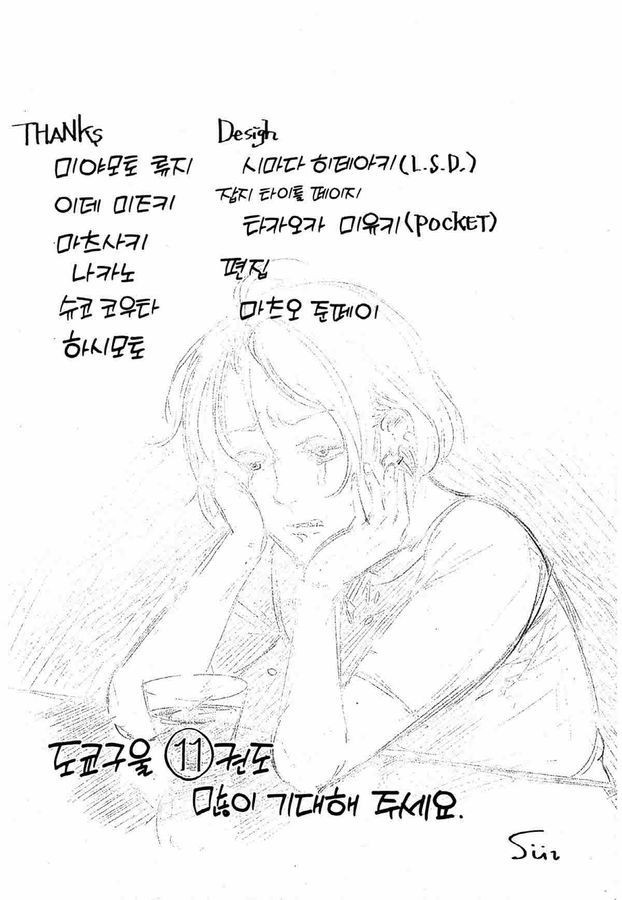 THANKS
미야모토 류지
이데 미트키
마츠사키
나카노
슈쿄 코우타
하시모토
Design
시마다 히데아키(L.S.D.)
잡지 타이틀 페이지
타카오카 미유키(POCKET)
편집
마츠오 준페이
도쿄구울 11권도
많이 기대해 주세요.